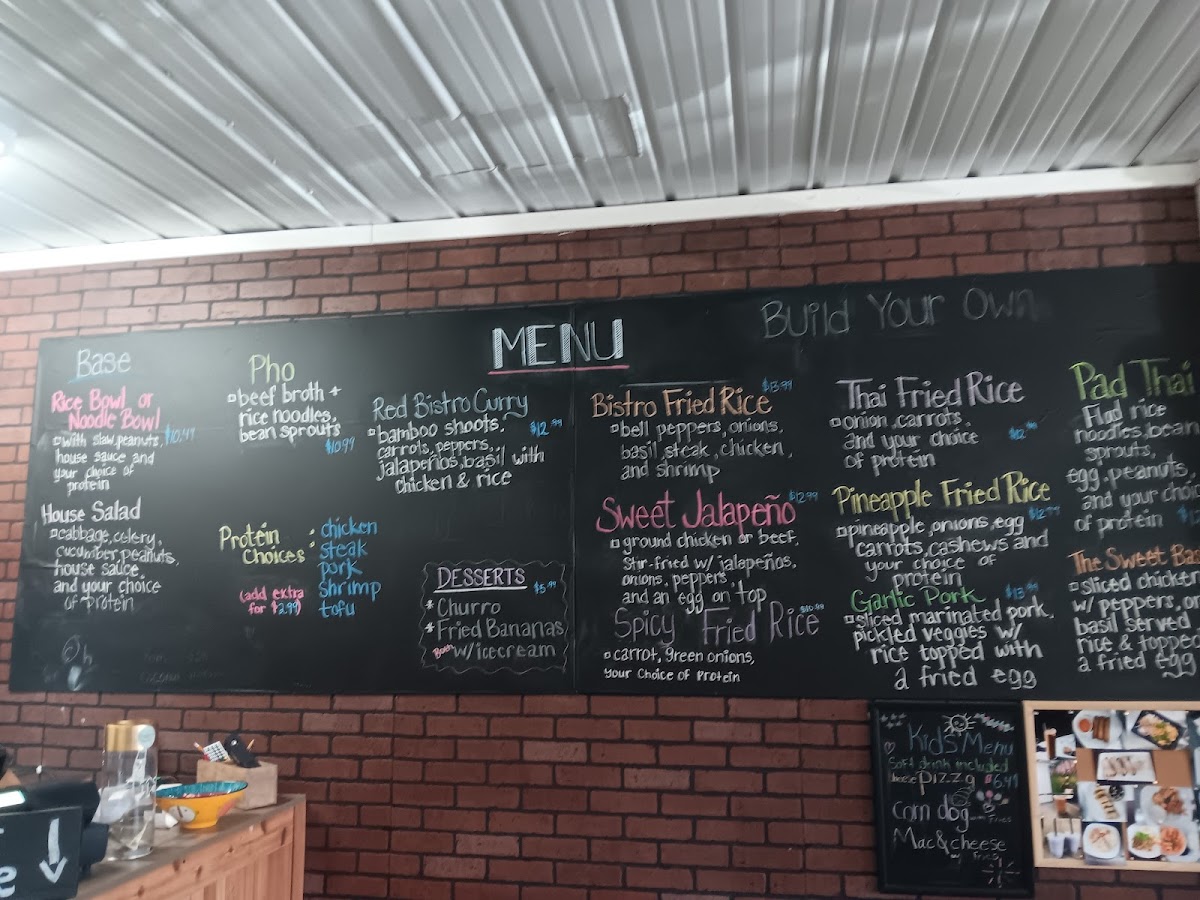 MENU
Build Your Own
Base
Rice Bowl or
Noodle Bowl
with slaw, peanuts, $10.49
house sauce and
your choice of
protein
House Salad
cabbage, celery,
cucumber, peanuts,
house sauce.
and your choice
of protein
Pho
beef broth +
rice noodles,
bean sprouts
$10.99
Protein
Choices :
chicken
steak
pork
shrimp
tofu
(add extra
for $2.99)
Red Bistro Curry
bamboo shoots, $12.99
carrots, peppers,
jalapeños, basil with
chicken & rice
DESSERTS $5.99
* Churro
* Fried Bananas
Both w/icecream
Bistro Fried Rice $13.99
bell peppers, onions,
basil, steak, chicken,
and shrimp
Sweet Jalapeño $12.99
ground chicken or beef,
stir-fried w/ jalapeños,
onions, peppers
and an egg on top
Spicy Fried Rice $10.99
carrot, green onions,
your choice of protein
Thai Fried Rice
onion, carrots,
and your choice
of protein
Pineapple Fried Rice
$12.99
pineapple, onions, egg
carrots, cashews and
your choice of
protein
Garlic Pork $13.99
sliced marinated pork,
pickled veggies w/
rice topped with
a fried egg
Pad Thai
rice
noodles, bean
sprouts,
egg, peanuts,
and your choi
of protein
The Sweet Ba
sliced chicken
w/ peppers, on
basil served
rice & topped
a fried egg
Kids Menu
Soft drink included
pizza $6.49
corn dog
Mac & cheese
w/ fries